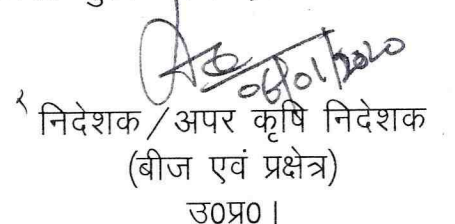 06/01/2020
निदेशक / अपर कृषि निदेशक
(बीज एवं प्रक्षेत्र)
उ0प्र0।